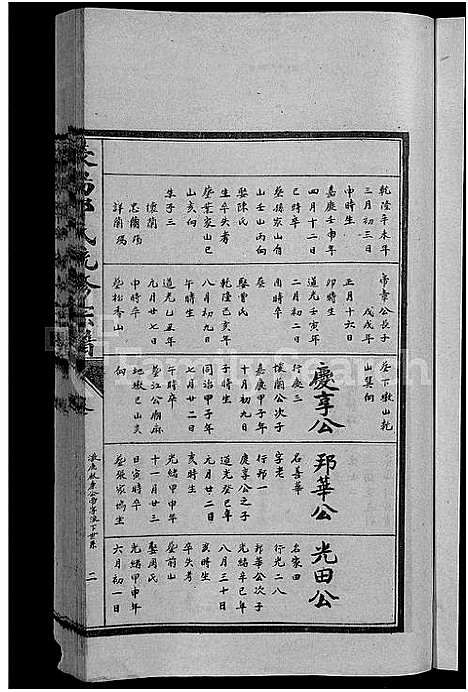 乾隆辛未年
三月初三日
申時生
嘉慶壬申年
四月十二日
巳時卒
葬孫家山前
山壬山丙向
娶陳氏
生卒失考
葬葉家山巳
山亥向
生子三
懷蘭
思蘭殤
詳蘭殤
帝章公長子
戊戌年
正月十六日
卯時生
道光壬寅年
二月初二日
酉時卒
葬
娶曹氏
乾隆己亥年
八月初九日
午時生
道光乙丑年
九月廿七日
時卒
葬松香山
葬下墩山乾
山巽向
慶享公
行慶三
懷蘭公次子
嘉慶甲子年
十月初九日
子時生
同治甲子年
七月廿二日
午時卒
葬江公廟麻
地墩巳山亥
向
邦華公
名善華
字老
行邦一
慶享公之子
道光癸巳年
元月廿二日
亥時生
光緒甲申年
十一月廿三
日寅時卒
葬張家塢生
光田公
名家田
行光二八
邦華公次子
光緒辛巳年
八月三十日
亥時生
卒失考
葬前山
娶周氏
光緒甲申年
六月初一日
氏統修宗譜
二
FamilySearch